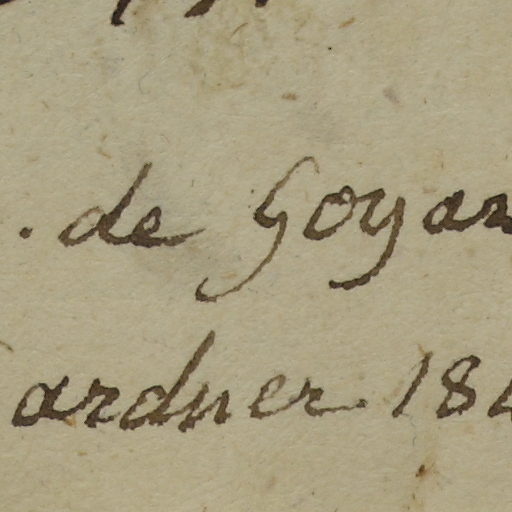 . de Goyaz
ardner 184